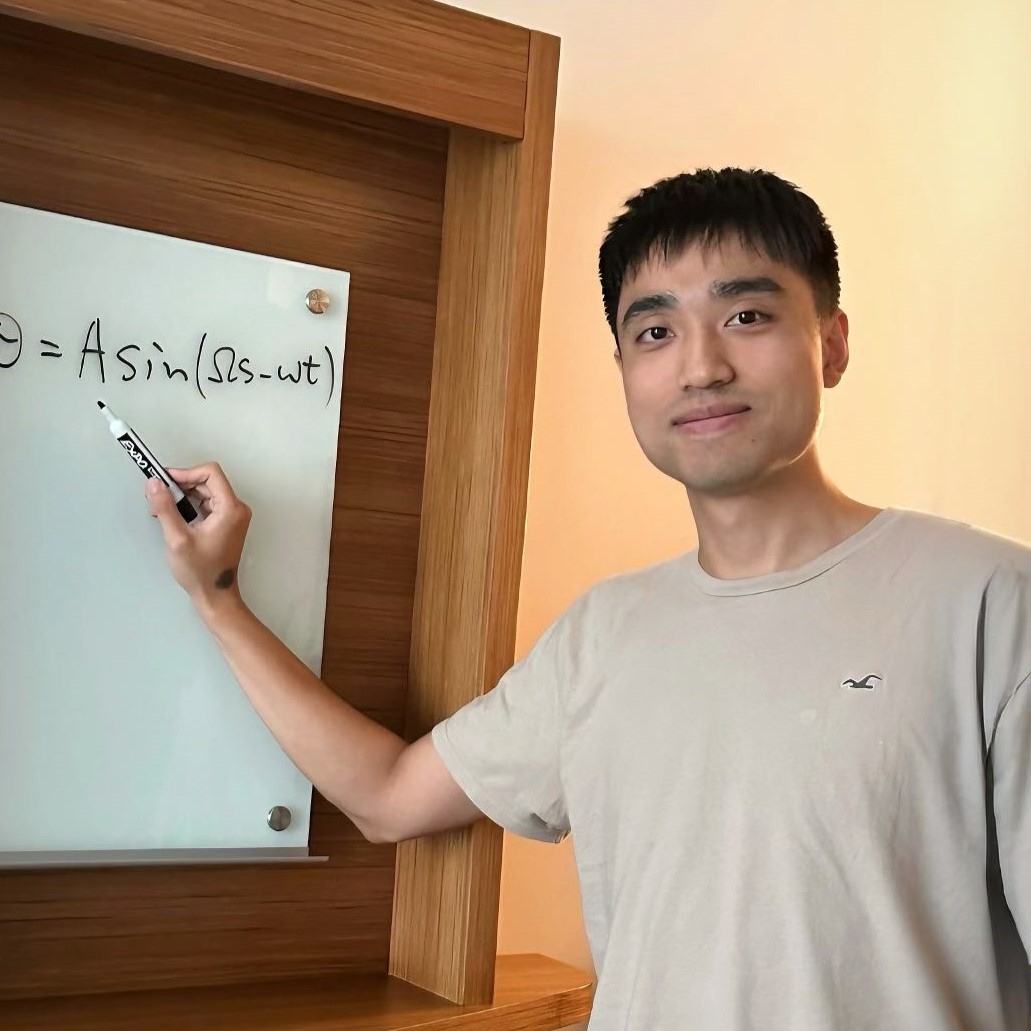 = A sin(Ωs-ωt)
EXPO